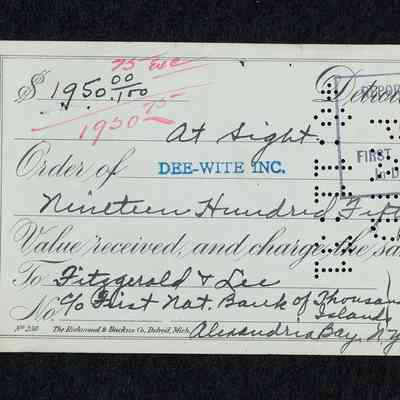 75 exc
$ 1950.00/100 Detroi
1950 75
At Sight
Order of DEE-WITE INC.
FIRST
Nineteen Hundred Fift
Value received, and charge the sa
To Fitzgerald & Lee
No. c/o First Nat. Bank of Thousan
Island
Alexandria Bay, N.Y
No 250 The Richmond & Backus Co. Detroit, Mich.